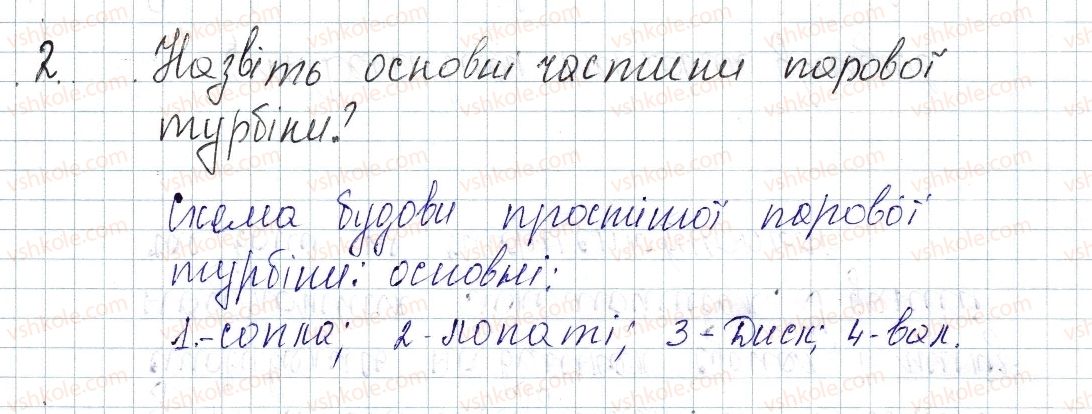 2. Назвіть основні частини парової
турбіни?
Схема будови простішої парової
турбіни: основні:
1.-сопла; 2-лопаті; 3-Диск; 4-вал.